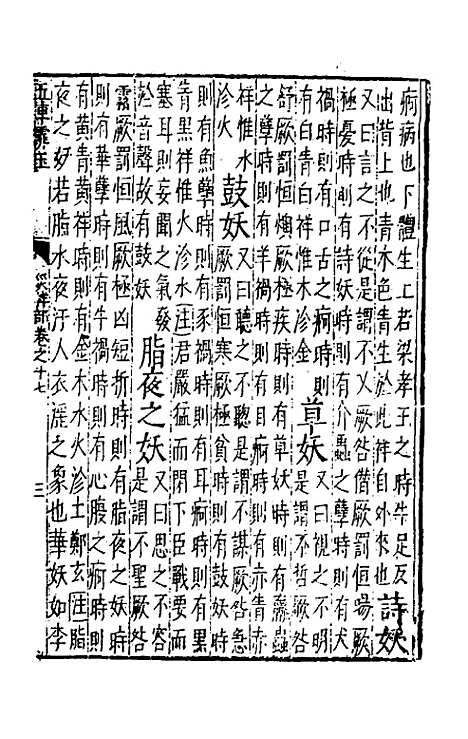 痾病也下體生上若梁孝王之時牛足反
出背上也青木色青生於此祥自外來也
詩妖
又曰言之不從是謂不乂厥咎僭厥罰恒暘厥
極憂時則有詩妖時則有介蟲之孽時則有犬
禍時則有口舌之痾時則
有白眚白祥惟木沴金
草妖
又曰視之不明
是謂不哲厥咎
舒厥罰恒燠厥極疾時則有草妖時則有蠃蟲
之孽時則有羊禍時則有目痾時則有赤眚赤
祥惟水
沴火
鼓妖
又曰聽之不聰是謂不謀厥咎急
厥罰恒寒厥極貧時則有鼓妖時
則有魚孽時則有豕禍時則有耳痾時則有黑
眚黑祥惟火沴水注君嚴猛而閉下臣戰要而
塞耳則妄聞之氣發
於音聲故有鼓妖
脂夜之妖
又曰思之不容
是謂不聖厥咎
霧厥罰恒風厥極凶短折時則有脂夜之妖時
則有華孽時則有牛禍時則有心腹之痾時則
有黃眚黃祥時則有金木水火沴土鄭玄注脂
夜之妖若脂水夜汙人衣淫之象也華妖如李
五車霏玉
災祥部卷之十七
三